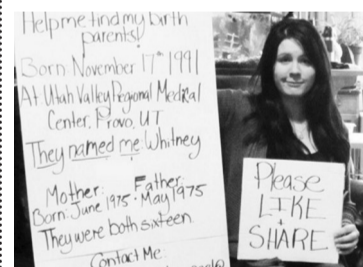 Help me find my birth
parents!
Born: November 17th 1991
At Utah Valley Regional Medical
Center, Provo, UT
They named me: Whitney
Mother: Father:
Born: June 1975 · May 1975
They were both sixteen.
Contact Me:
Please
LIKE
+
SHARE